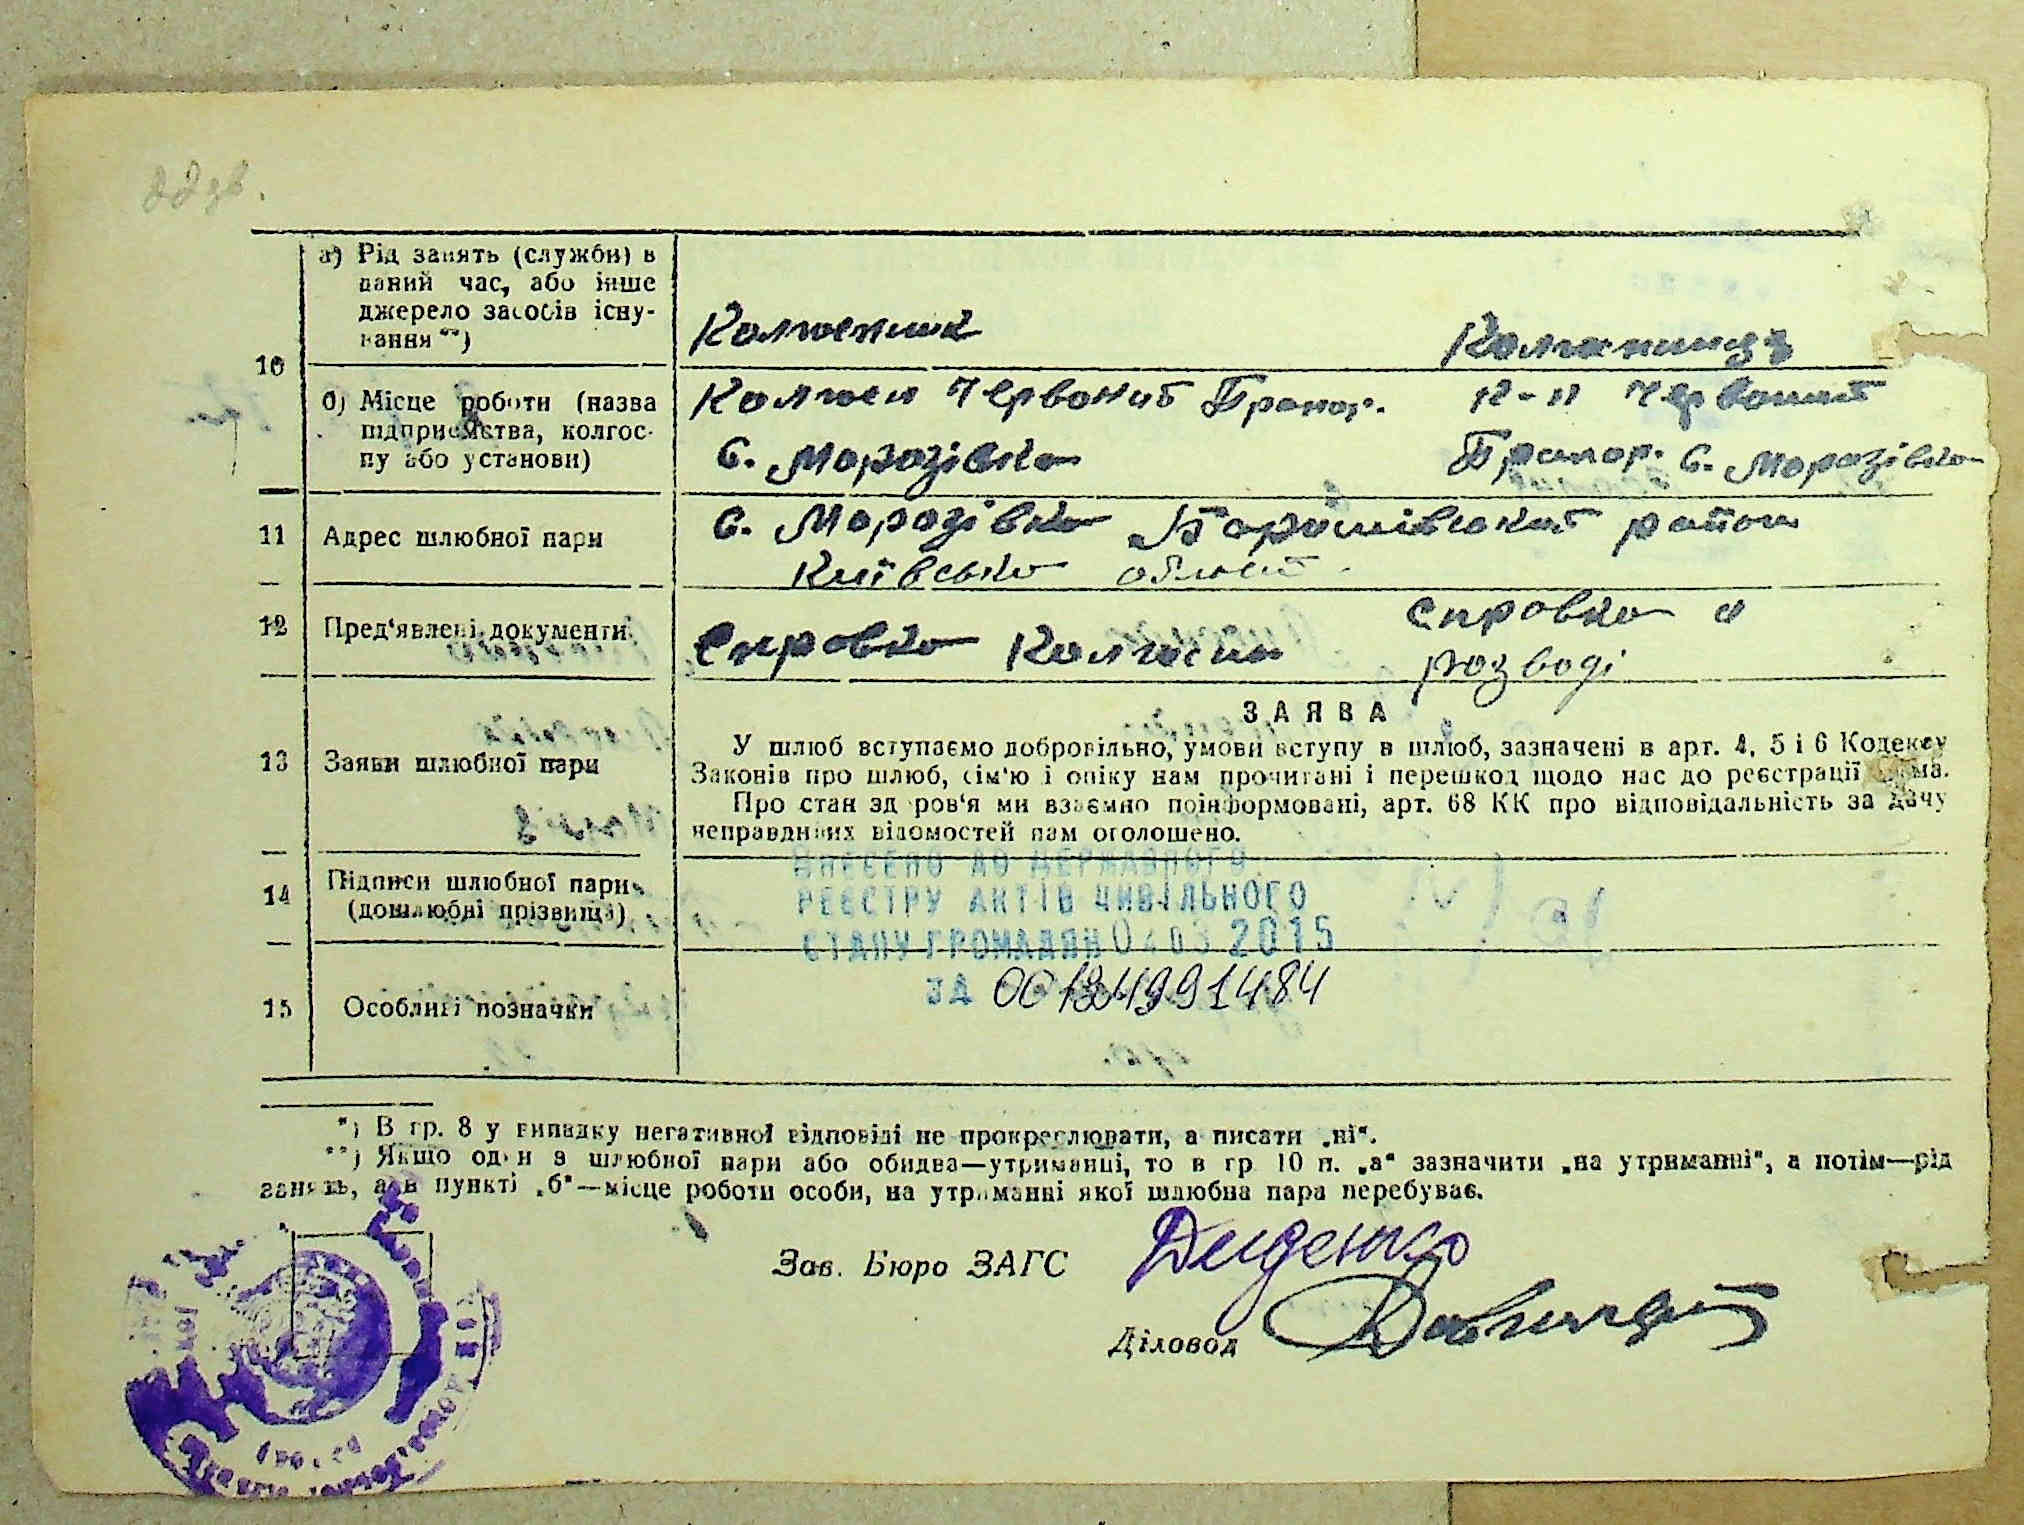 а) Рід занять (служби) в
даний час, або інше
джерело засобів існу-
вання **)
Колгоспник
Колгоспниця
10
б) Місце роботи (назва
підприємства, колгос-
пу або установи)
Колгосп Червоний Прапор.
к-п Червоний
с. Морозівка
Прапор. с. Морозівка
11
Адрес шлюбної пари
с. Морозівка Баришівський район
Київська область.
12
Пред'явлені документи.
Справка Колгоспи
справка о
розводі
ЗАЯВА
13
Заяви шлюбної пари
У шлюб вступаємо добровільно, умови вступу в шлюб, зазначені в арт. 4, 5 і 6 Кодексу
Законів про шлюб, сім'ю і опіку нам прочитані і перешкод щодо нас до реєстрації нема.
Про стан здоров'я ми взаємно поінформовані, арт. 68 КК про відповідальність за дачу
неправдивих відомостей нам оголошено.
14
Підписи шлюбної пари
(дошлюбні прізвища)
ВНЕСЕНО ДО ДЕРЖАВНОГО
РЕЄСТРУ АКТІВ ЦИВІЛЬНОГО
СТАНУ ГРОМАДЯН 04 03 2015
ЗА
15
Особливі позначки
*) В гр. 8 у випадку негативної відповіді не прокреслювати, а писати „ні“.
**) Якщо один з шлюбної пари або обидва—утриманці, то в гр. 10 п. „а“ зазначити „на утриманні“, а потім—рід
занять, а в пункті „б“—місце роботи особи, на утриманні якої шлюбна пара перебуває.
Зав. Бюро ЗАГС
Диденко
Діловод